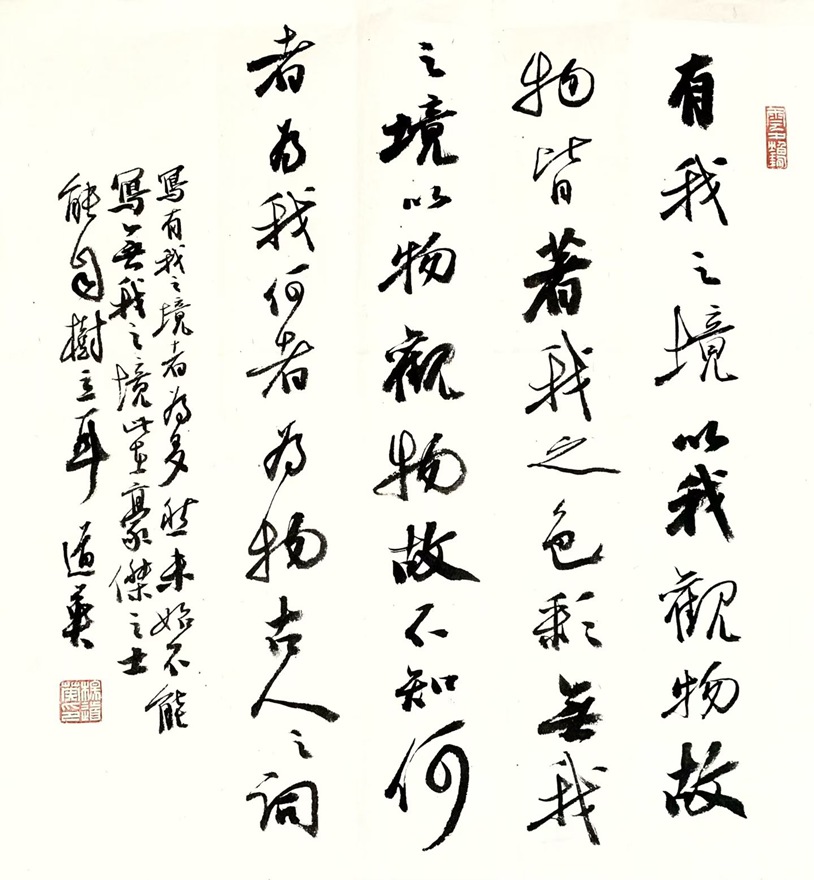 有我之境以我觀物故
物皆著我之色彩無我
之境以物觀物故不知何
者為我何者為物古人之詞
寫有我之境者為多然未始不能
寫無我之境此在豪傑之士
能自樹立耳 道英
楊道英印